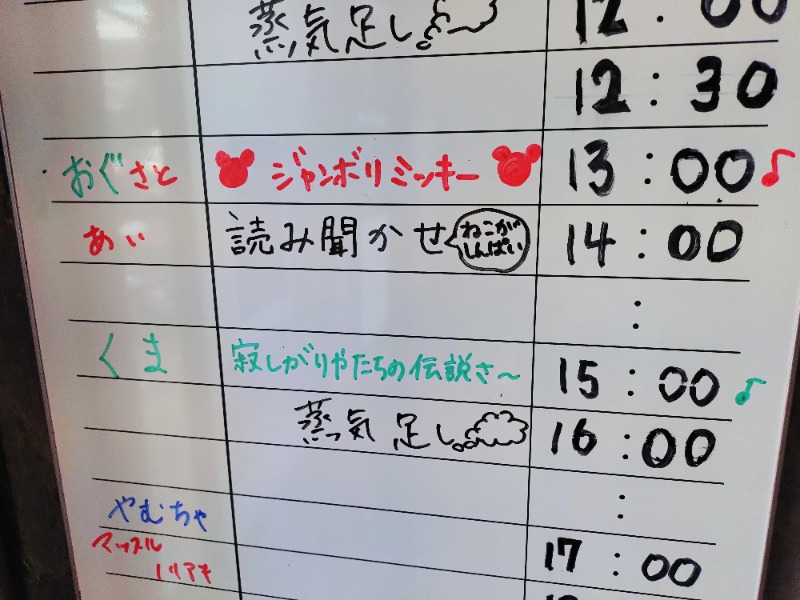 蒸気足し 12:00
12:30
おぐさと ジャンボリミッキー 13:00
あい 読み聞かせ ねこがしんぱい 14:00
:
くま 寂しがりやたちの伝説さ~ 15:00
蒸気足し 16:00
:
やむちゃ
マッスル 17:00
ノリアキ